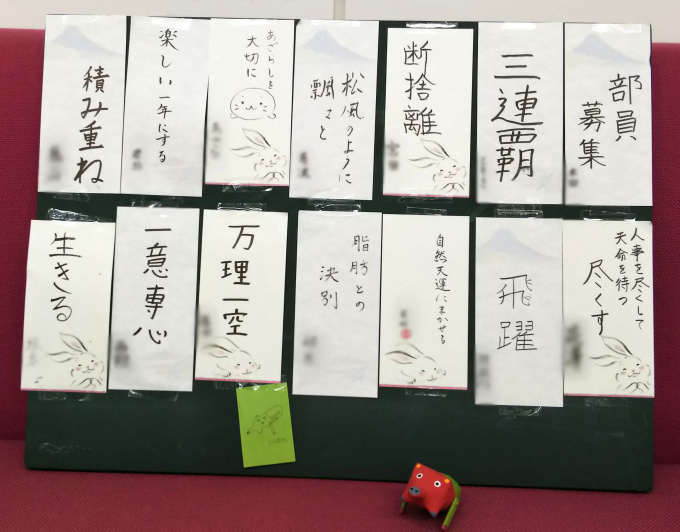 部員
募集
三連覇
断捨離
松風のように
飄々と
あざらしを
大切に
楽しい一年にする
積み重ね
人事を尽くして
天命を待つ
尽くす
飛躍
自然天運にまかせる
脂肪との
決別
万理一空
一意専心
生きる